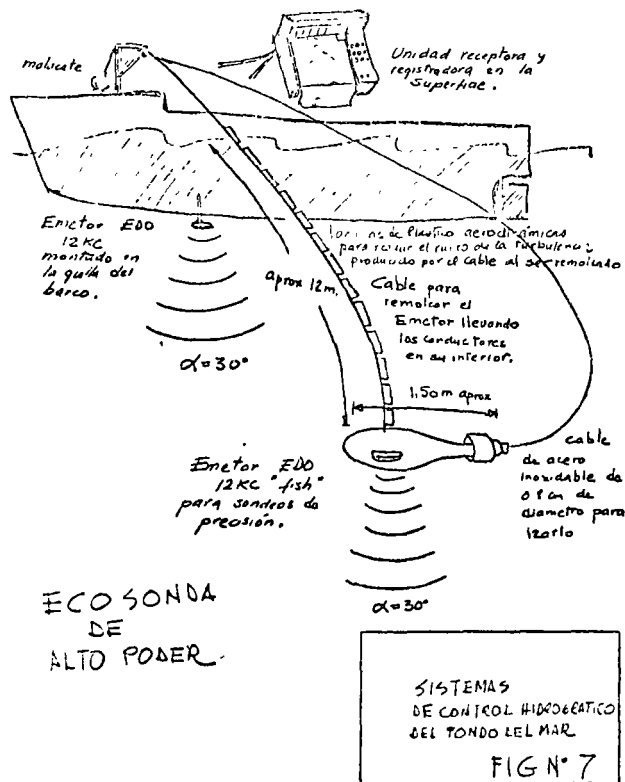 malacate
Unidad receptora y
registradora en la
Superficie.
Emictor EDO
12 KC
montado en
la quilla del
barco.
α = 30°
aprox 12 m.
de Plastico aerodinámicas
para el ruido de la turbulencia
producido por el cable al ser remolcado
Cable para
remolcar el
Emctor llevando
los conductores
en su interior.
1.50 m aprox
Emetor EDO
12 KC "fish"
para sondeos de
precisión.
cable
de acero
inoxidable de
0 8 cm de
diametro para
izarlo
α = 30°
ECOSONDA
DE
ALTO PODER.
SISTEMAS
DE CONTROL HIDROGRATICO
DEL FONDO DEL MAR
FIG Nº 7